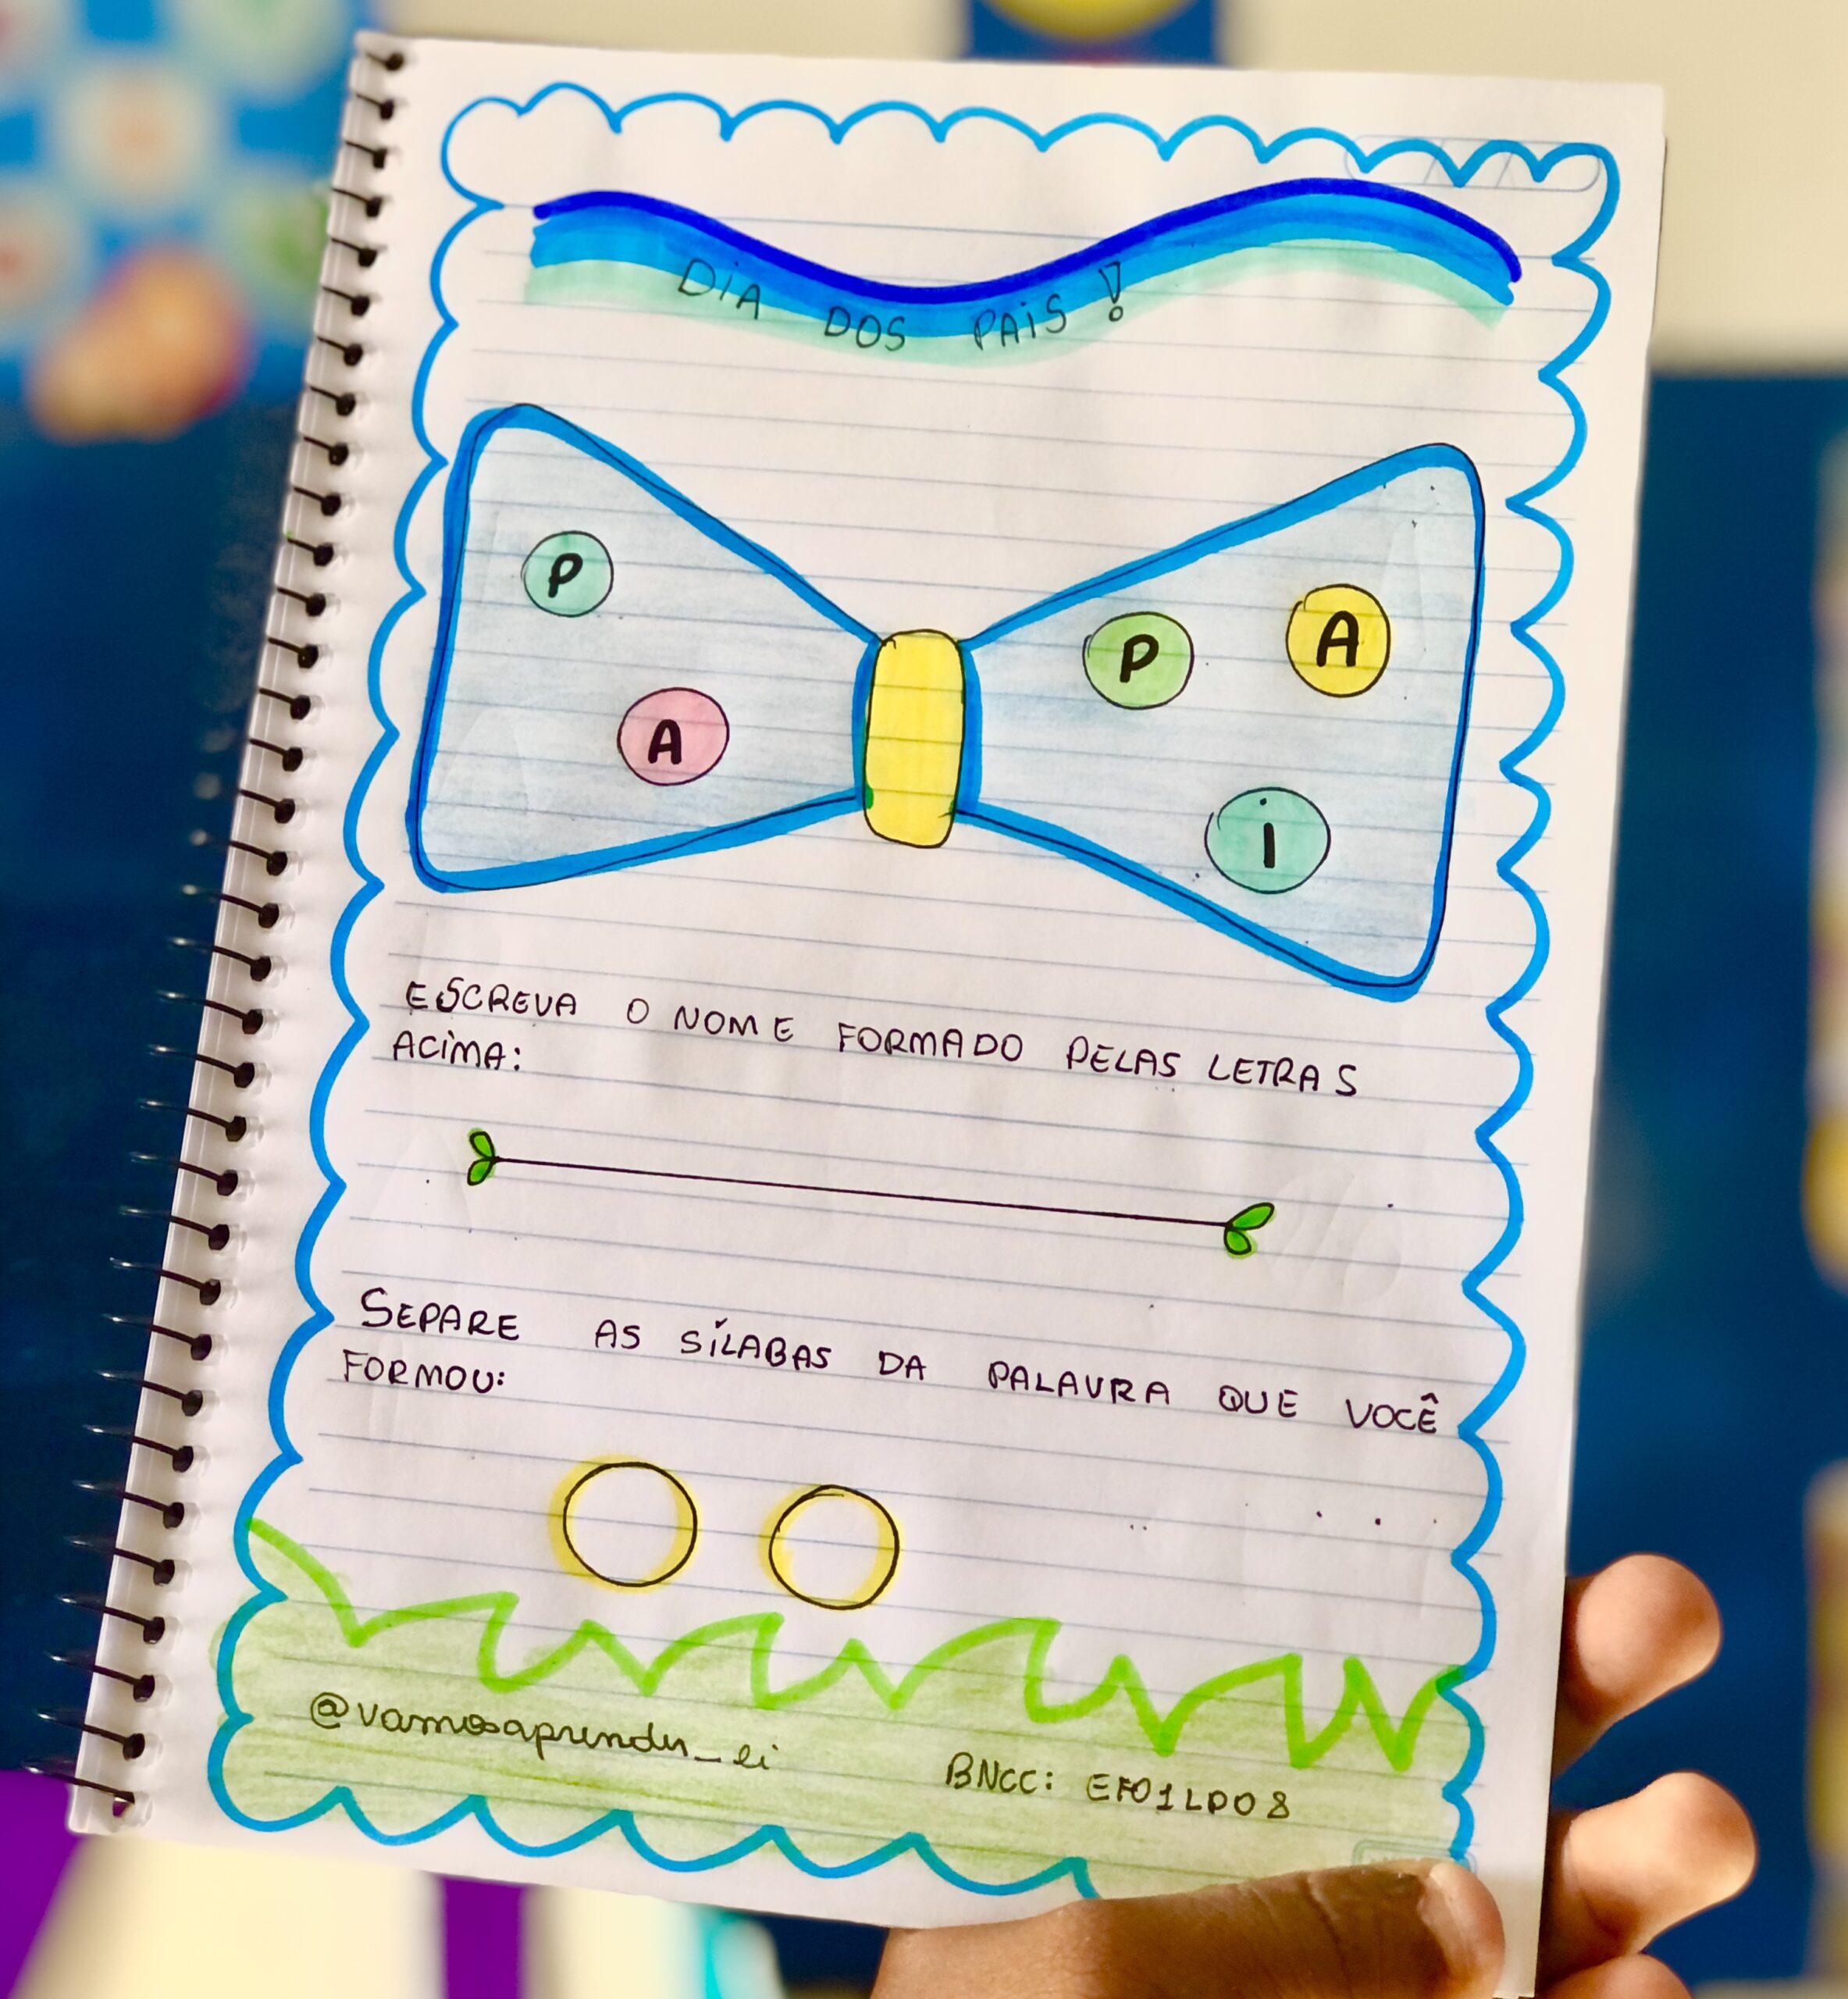 DiA DOS PAiS!
P
A
P
A
i
ESCREVA O NOME FORMADO PELAS LETRAS
ACiMA:
SEPARE AS SÍLABAS DA PALAVRA QUE VOCÊ
FORMOU:
@vamosaprender_ei
BNCC: EF01LP08